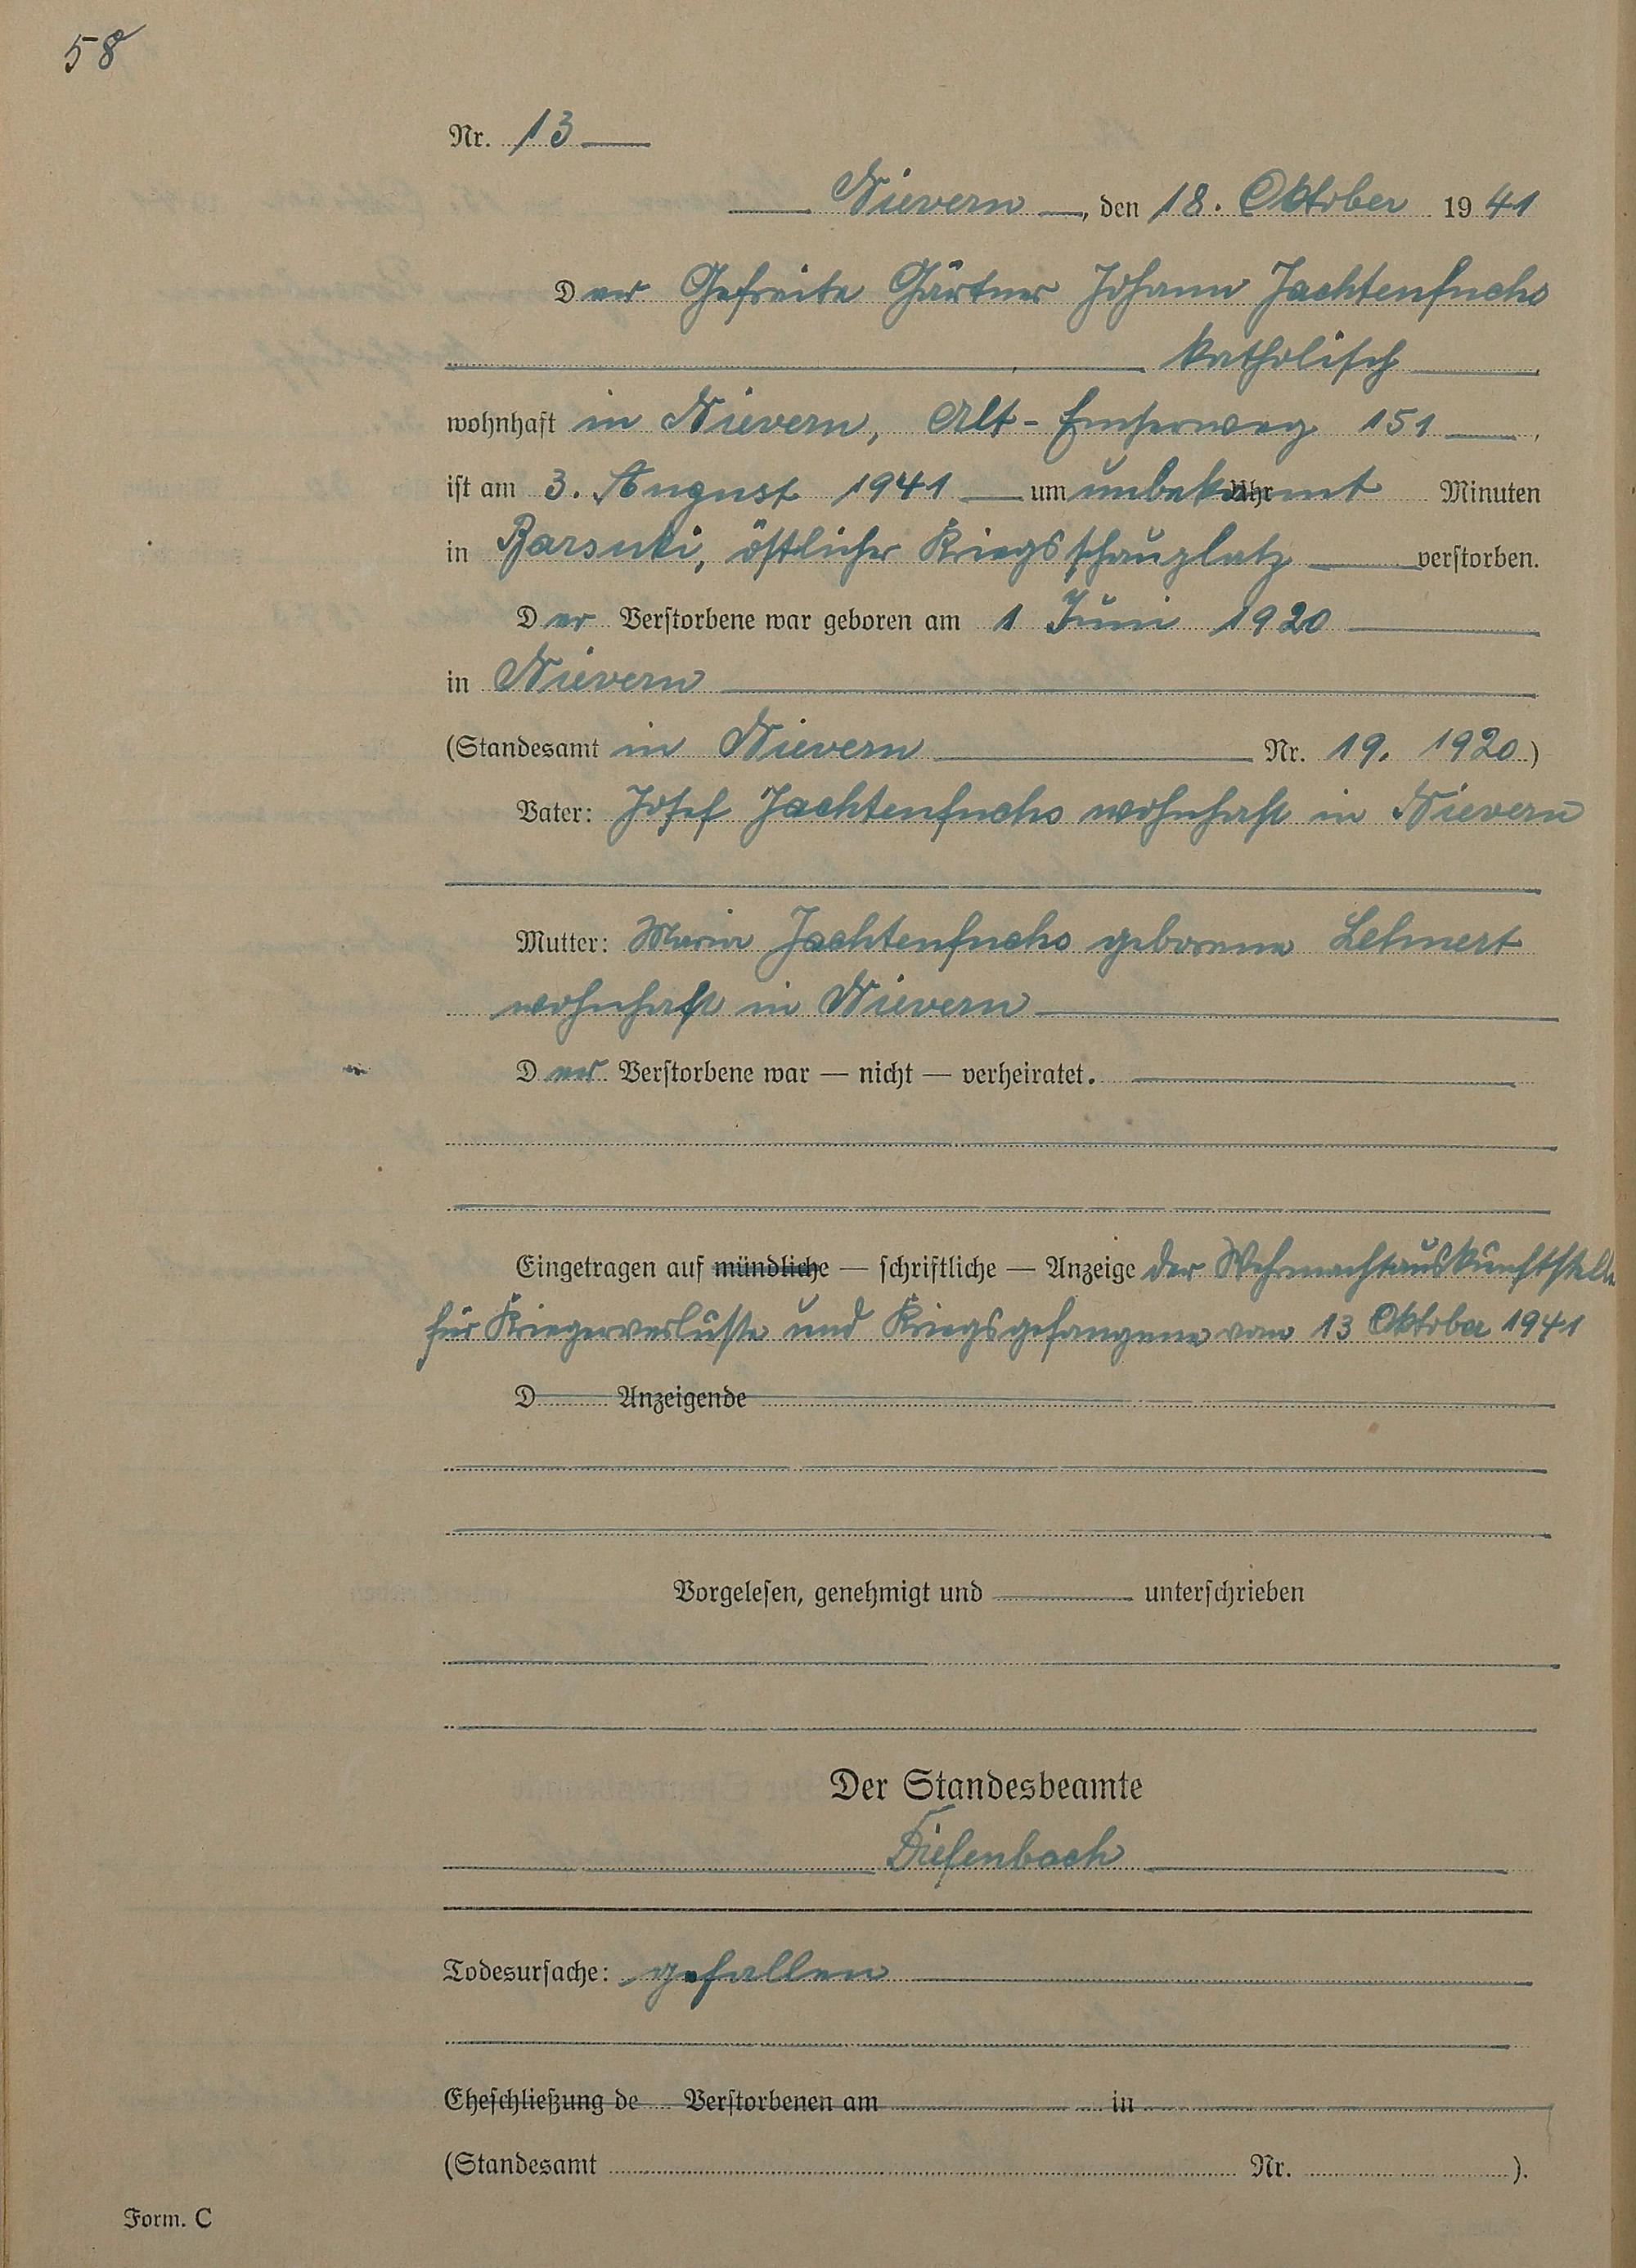 58
Nr. 13
Nievern, den 18. Oktober 1941
Der Gefreite Gärtner Johann Jachtenfuchs
katholisch
wohnhaft in Nievern, Alt-Emserweg 151,
ist am 3. August 1941 um unbekannt Uhr Minuten
in Barsuki, östlicher Kriegsschauplatz verstorben.
Der Verstorbene war geboren am 1 Juni 1920
in Nievern
(Standesamt in Nievern Nr. 19. 1920)
Vater: Josef Jachtenfuchs wohnhaft in Nievern
Mutter: Maria Jachtenfuchs geborene Lehnert
wohnhaft in Nievern
Der Verstorbene war — nicht — verheiratet.
Eingetragen auf mündliche — schriftliche — Anzeige der Wehrmachtauskunftstelle
für Kriegerverluste und Kriegsgefangene vom 13 Oktober 1941
D Anzeigende
Vorgelesen, genehmigt und unterschrieben
Der Standesbeamte
Diefenbach
Todesursache: gefallen
Eheschließung de Verstorbenen am in
(Standesamt Nr. ).
Form. C